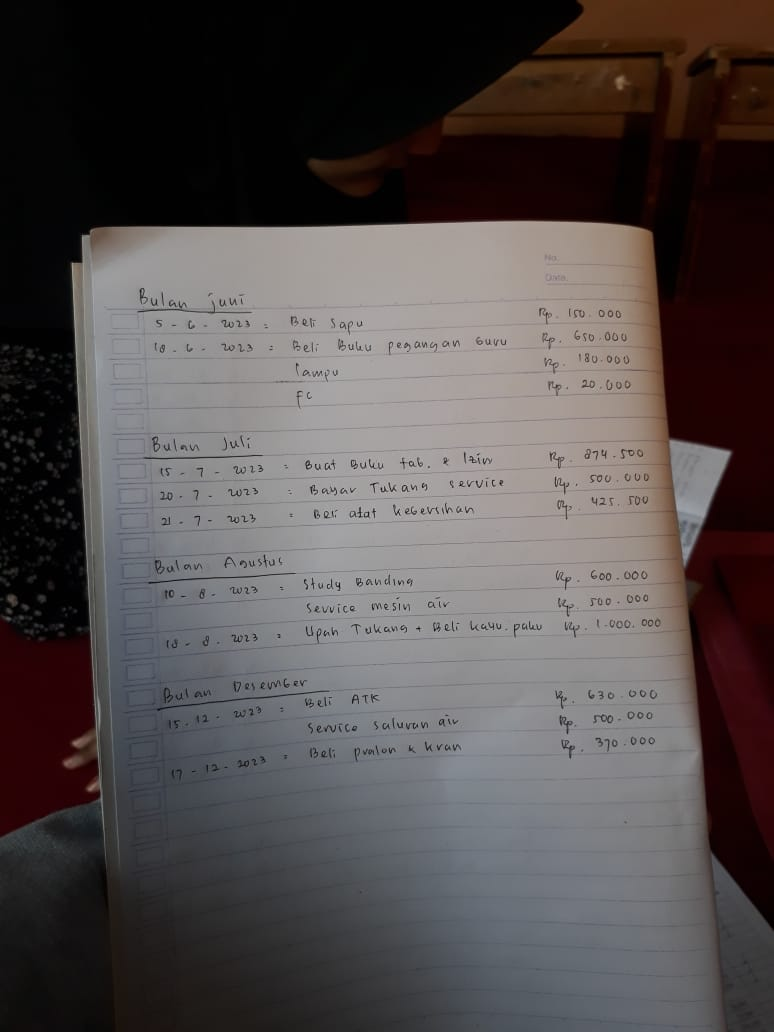 No.
Date.
Bulan juni
5 - 6 - 2023 = Beli Sapu Rp. 150.000
18 - 6 - 2023 = Beli Buku pegangan Guru Rp. 650.000
lampu Rp. 180.000
FC Rp. 20.000
Bulan Juli
15 - 7 - 2023 = Buat Buku tab. & Izin Rp. 874.500
20 - 7 - 2023 = Bayar Tukang service Rp. 500.000
21 - 7 - 2023 = Beli alat kebersihan Rp. 425.500
Bulan Agustus
10 - 8 - 2023 = Study Banding Rp. 600.000
Service mesin air Rp. 500.000
18 - 8 - 2023 = Upah Tukang + Beli kayu. paku Rp. 1.000.000
Bulan Desember
15 - 12 - 2023 = Beli ATK Rp. 630.000
Service saluran air Rp. 500.000
17 - 12 - 2023 = Beli pralon & kran Rp. 370.000